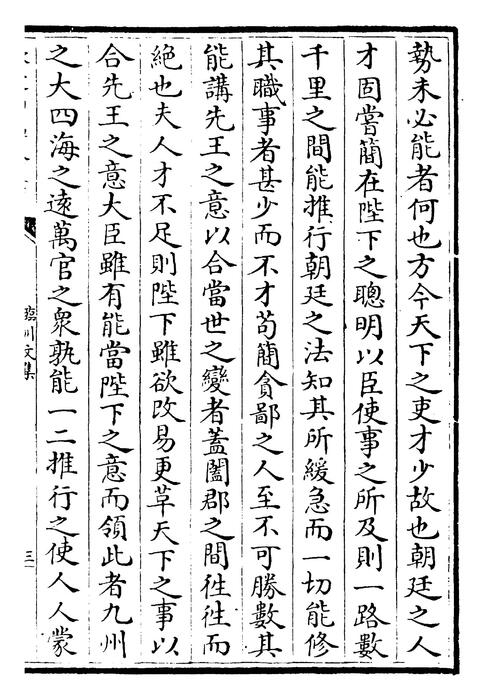 勢未必能者何也方今天下之吏才少故也朝廷之人
才固嘗簡在陛下之聰明以臣使事之所及則一路數
千里之間能推行朝廷之法知其所緩急而一切能修
其職事者甚少而不才茍簡貪鄙之人至不可勝數其
能講先王之意以合當世之變者蓋闔郡之間徃徃而
絶也夫人才不足則陛下雖欲改易更革天下之事以
合先王之意大臣雖有能當陛下之意而領此者九州
之大四海之逺萬官之衆孰能一二推行之使人人蒙
臨川文集
三